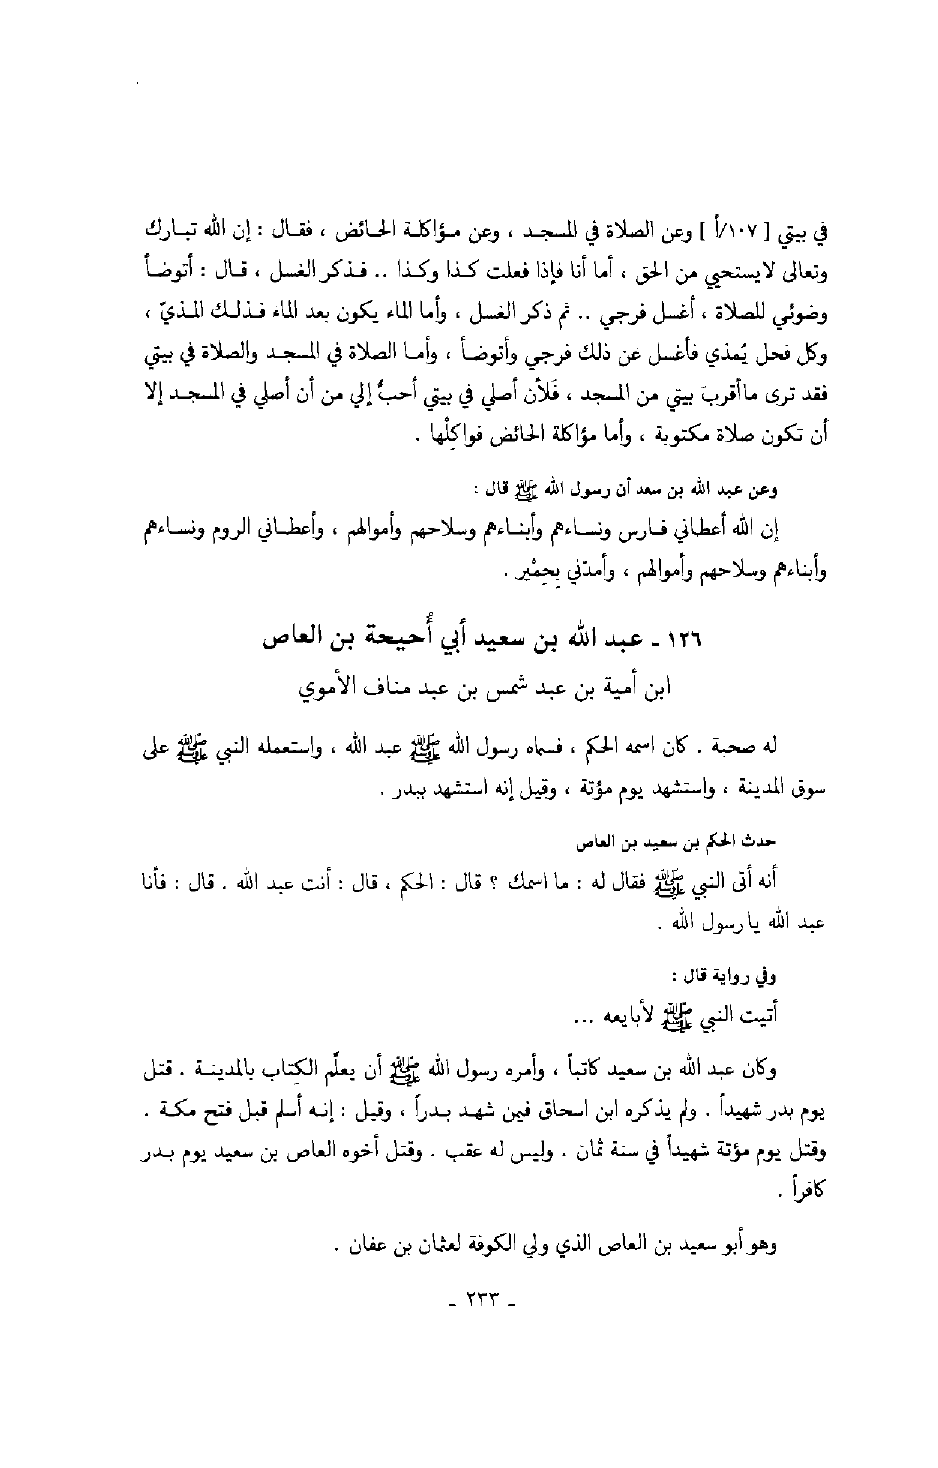 في بيتي [ ١٠٧/أ ] وعن الصلاة في المسجد ، وعن مؤاكلة الحائض ، فقال : إن الله تبارك
وتعالى لايستحيي من الحق ، أما أنا فإذا فعلت كذا وكذا .. فذكر الغسل ، قال : أتوضأ
وضوئي للصلاة ، أغسل فرجي .. ثم ذكر الغسل ، وأما الماء يكون بعد الماء فذلك المذيّ ،
وكل فحل يُمذي فأغسل عن ذلك فرجي وأتوضأ ، وأما الصلاة في المسجد والصلاة في بيتي
فقد ترى ماأقربَ بيتي من المسجد ، فَلأن أصلي في بيتي أحبُّ إلي من أن أصلي في المسجد إلا
أن تكون صلاة مكتوبة ، وأما مؤاكلة الحائض فواكِلْها .
وعن عبد الله بن سعد أن رسول الله ﷺ قال :
إن الله أعطاني فارس ونساءهم وأبناءهم وسلاحهم وأموالهم ، وأعطاني الروم ونساءهم
وأبناءهم وسلاحهم وأموالهم ، وأمدّني بِحِمْير .
١٢٦ ـ عبد الله بن سعيد أبي أُحيحة بن العاص
ابن أمية بن عبد شمس بن عبد مناف الأموي
له صحبة . كان اسمه الحكم ، فسماه رسول الله ﷺ عبد الله ، واستعمله النبي ﷺ على
سوق المدينة ، واستشهد يوم مؤتة ، وقيل إنه استشهد ببدر .
حدث الحكم بن سعيد بن العاص
أنه أتى النبي ﷺ فقال له : ما اسمك ؟ قال : الحكم ، قال : أنت عبد الله . قال : فأنا
عبد الله يارسول الله .
وفي رواية قال :
أتيت النبي ﷺ لأبايعه ...
وكان عبد الله بن سعيد كاتباً ، وأمره رسول الله ﷺ أن يعلّم الكِتاب بالمدينة . قتل
يوم بدر شهيداً . ولم يذكره ابن اسحاق فيمن شهد بدراً ، وقيل : إنه أسلم قبل فتح مكة .
وقتل يوم مؤتة شهيداً في سنة ثمان . وليس له عقب . وقتل أخوه العاص بن سعيد يوم بدر
كافراً .
وهو أبو سعيد بن العاص الذي ولي الكوفة لعثمان بن عفان .
ـ ٢٣٣ ـ